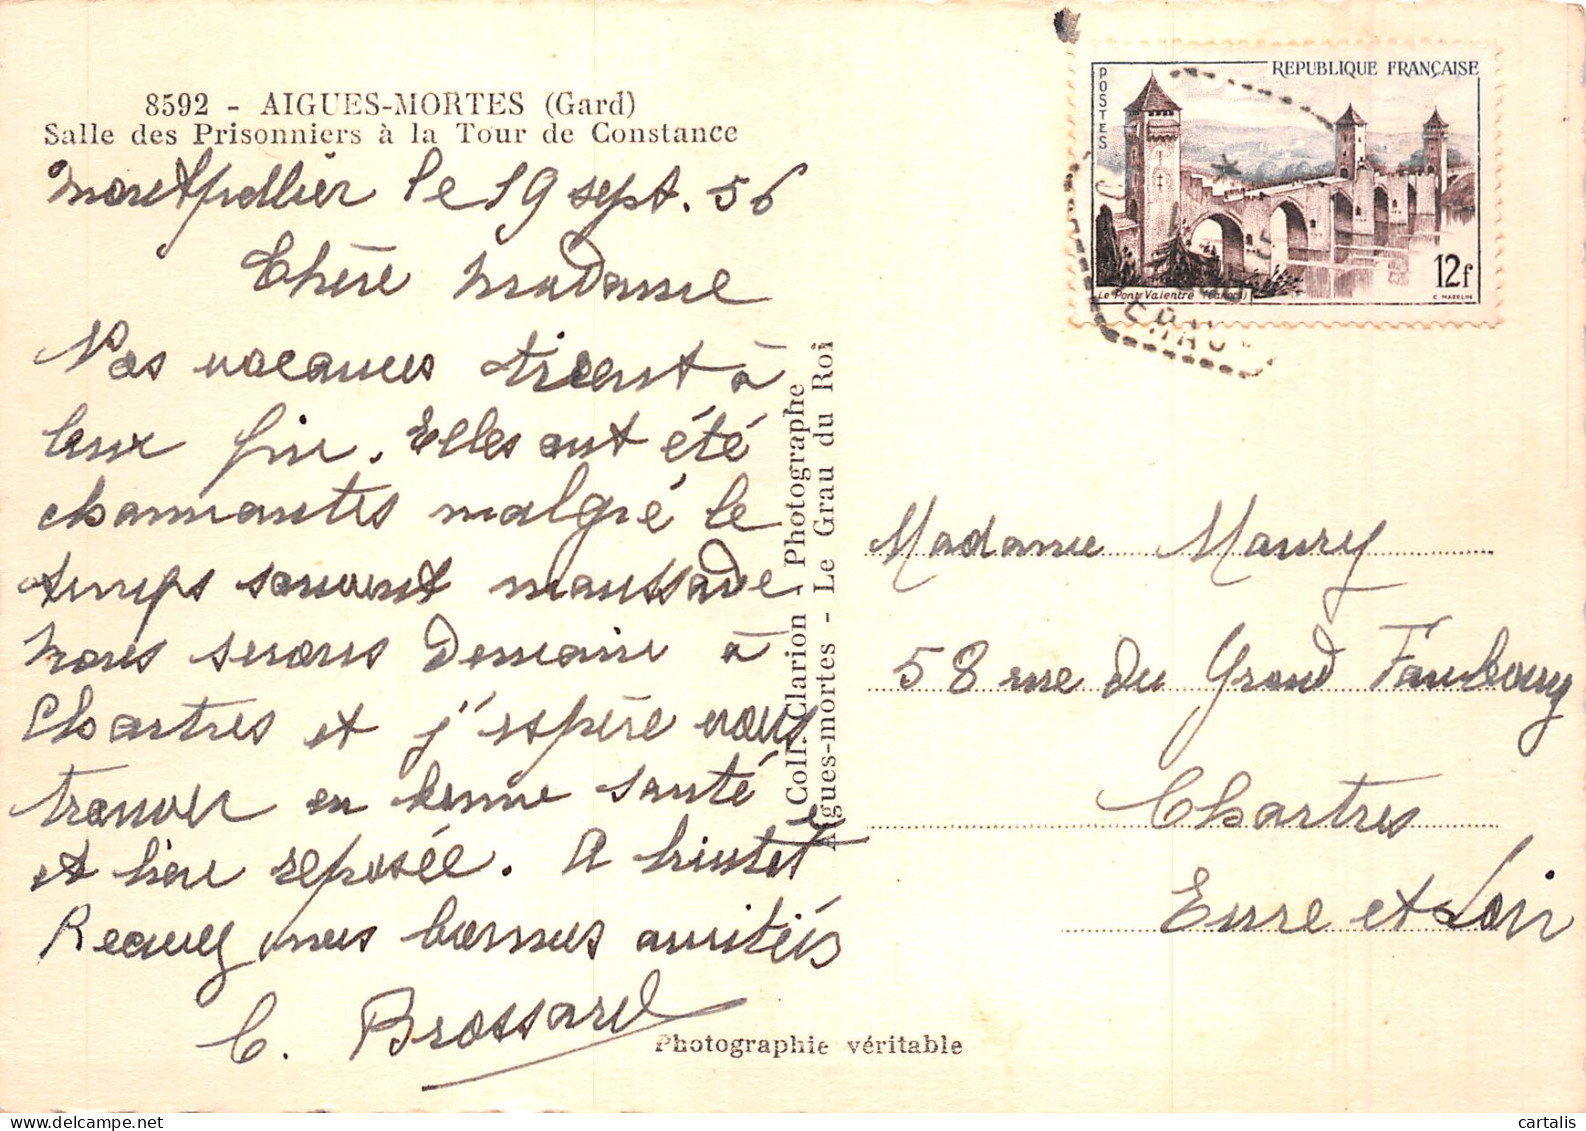 8592 - AIGUES-MORTES (Gard)
Salle des Prisonniers à la Tour de Constance
Montpellier le 19 sept. 56
Chère Madame
Nos vacances tirent à
leur fin. Elles ont été
charmantes malgré le
temps souvent maussade
Nous serons demain à
Chartres et j'espère vous
trouver en bonne santé
et bien reposée. A bientôt
Recevez mes bonnes amitiés
C. Brossard
Photographie véritable
Coll. Clarion - Photographe
Aigues-mortes - Le Grau du Roi
REPUBLIQUE FRANÇAISE
POSTES
12f
Le Pont Valentré (Cahors)
C. MAZELIN
Madame Maury
58 rue du Grand Faubourg
Chartres
Eure et Loir
cartalis